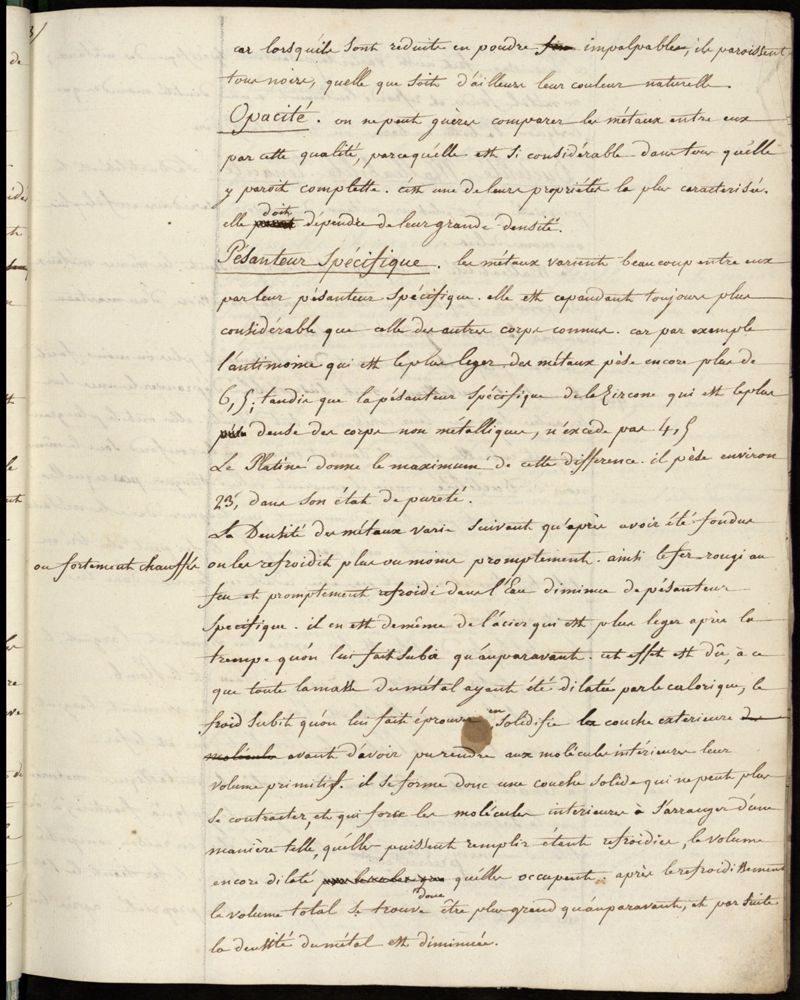 car lorsqu'ils sont reduits en poudre impalpable, ils paroissent
tous noirs, quelle que soit d'ailleurs leur couleur naturelle.
Opacité. on ne peut guères comparer les métaux entre eux
par cette qualité, parcequ'elle est si considérable dans tous qu'elle
y paroit complette. c'est une de leurs propriétés la plus caracterisée.
elle doit dépendre de leur grande densité.
Pésanteur Spécifique. les métaux varient beaucoup entre eux
par leur pésanteur spécifique. elle est cependant toujours plus
considérable que celle des autres corps connus. car par exemple
l'antimoine qui est le plus leger des métaux pèse encore plus de
6,5; tandis que la pésanteur spécifique de la Zircone qui est le plus
dense des corps non métalliques, n'excede pas 4,5
Le Platine donne le maximum de cette difference. il pèse environ
23, dans son état de pureté.
La Densité des métaux varie suivant qu'après avoir été fondus
ou fortement chauffés on les refroidit plus ou moins promptement. ainsi le fer rougi au
feu et promptement refroidi dans l'Eau diminue de pésanteur
specifique. il en est de même de l'acier qui est plus leger après la
trempe qu'on lui fait subir qu'auparavant. cet effet est dû, à ce
que toute la masse du métal ayant été dilatée par le calorique, le
froid subit qu'on lui fait éprouver en solidifie la couche exterieure
avant d'avoir pu rendre aux molécules intérieures leur
volume primitif. il se forme donc une couche solide qui ne peut plus
se contracter, et qui force les molécules interieures à s'arranger d'une
manière telle, qu'elles puissent remplir étant refroidies, le volume
encore dilaté qu'elles occupent. après le refroidissement
le volume total se trouve donc être plus grand qu'auparavant, et par suite
la densité du métal est diminuée.